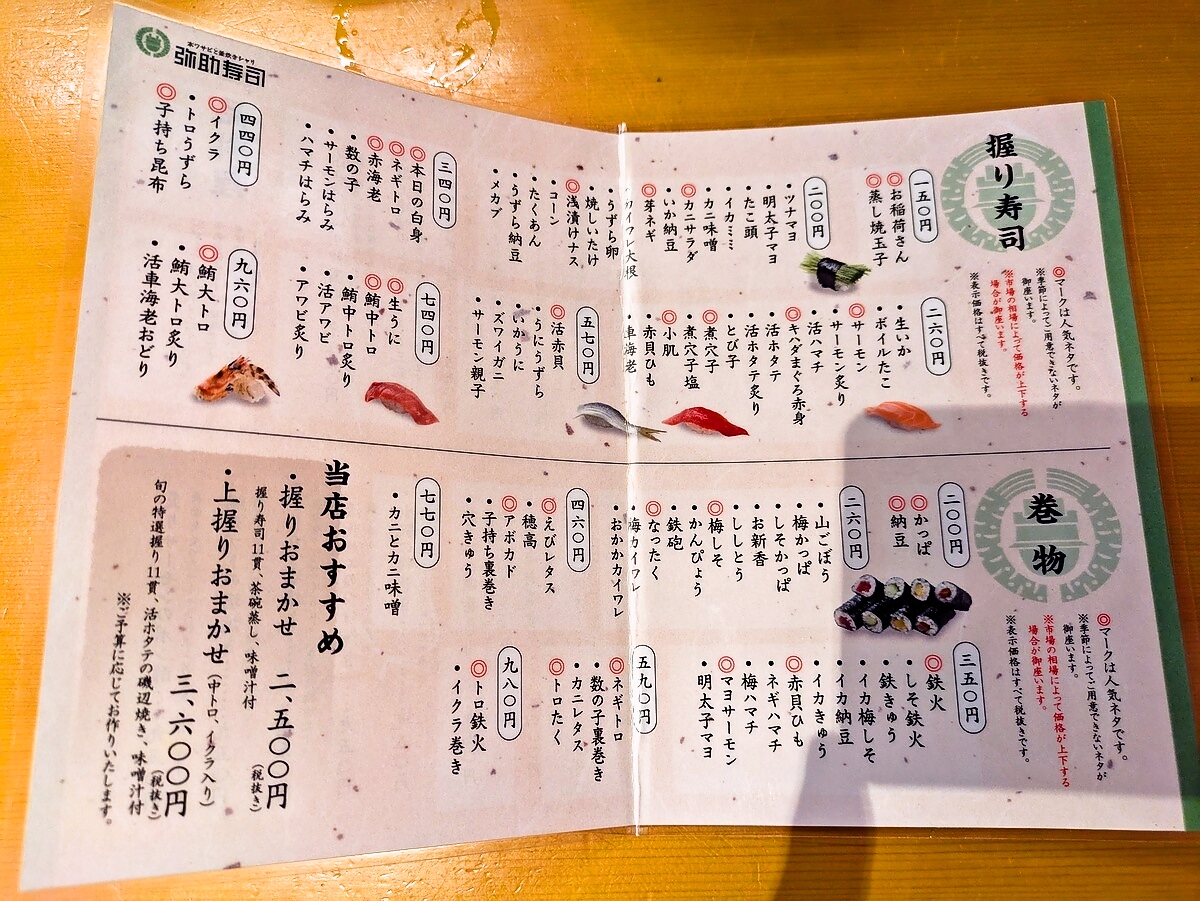 本ワサビと釜炊きシャリ
弥助寿司
握り寿司
◎マークは人気ネタです。
※季節によってご用意できないネタが
御座います。
※市場の相場によって価格が上下する
場合が御座います。
※表示価格はすべて税抜きです。
一五〇円
◎お稲荷さん
◎蒸し焼玉子
二〇〇円
・ツナマヨ
・明太子マヨ
・たこ頭
・イカミミ
・カニ味噌
◎カニサラダ
・いか納豆
◎芽ネギ
・カイワレ大根
・うずら卵
・焼しいたけ
◎浅漬けナス
・コーン
・たくあん
・うずら納豆
・メカブ
三四〇円
◎本日の白身
◎ネギトロ
◎赤海老
・数の子
・サーモンはらみ
・ハマチはらみ
四四〇円
◎イクラ
・トロうずら
◎子持ち昆布
二六〇円
・生いか
・ボイルたこ
◎サーモン
・サーモン炙り
・活ハマチ
◎キハダまぐろ赤身
・活ホタテ
・活ホタテ炙り
・とび子
◎煮穴子
・煮穴子塩
◎小肌
・赤貝ひも
・車海老
五七〇円
◎活赤貝
・うにうずら
・いかうに
・ズワイガニ
・サーモン親子
七四〇円
◎生うに
◎鮪中トロ
・鮪中トロ炙り
・活アワビ
・アワビ炙り
九六〇円
◎鮪大トロ
・鮪大トロ炙り
・活車海老おどり
巻物
◎マークは人気ネタです。
※季節によってご用意できないネタが
御座います。
※市場の相場によって価格が上下する
場合が御座います。
※表示価格はすべて税抜きです。
二〇〇円
◎かっぱ
◎納豆
二六〇円
・山ごぼう
・梅かっぱ
・しそかっぱ
・お新香
・ししとう
◎梅しそ
・かんぴょう
・鉄砲
◎なったく
・梅カイワレ
・おかかカイワレ
四六〇円
◎えびレタス
・穂高
◎アボカド
・子持ち裏巻き
・穴きゅう
七七〇円
・カニとカニ味噌
三五〇円
◎鉄火
・しそ鉄火
・鉄きゅう
・イカ梅しそ
・イカ納豆
・イカきゅう
◎赤貝ひも
・ネギハマチ
・梅ハマチ
◎マヨサーモン
・明太子マヨ
五九〇円
◎ネギトロ
・数の子裏巻き
・カニレタス
◎トロたく
九八〇円
◎トロ鉄火
・イクラ巻き
当店おすすめ
・握りおまかせ 二、五〇〇円(税抜き)
握り寿司11貫、茶碗蒸し、味噌汁付
・上握りおまかせ(中トロ、イクラ入り) 三、六〇〇円(税抜き)
旬の特選握り11貫、活ホタテの磯辺焼き、味噌汁付
※ご予算に応じてお作りいたします。